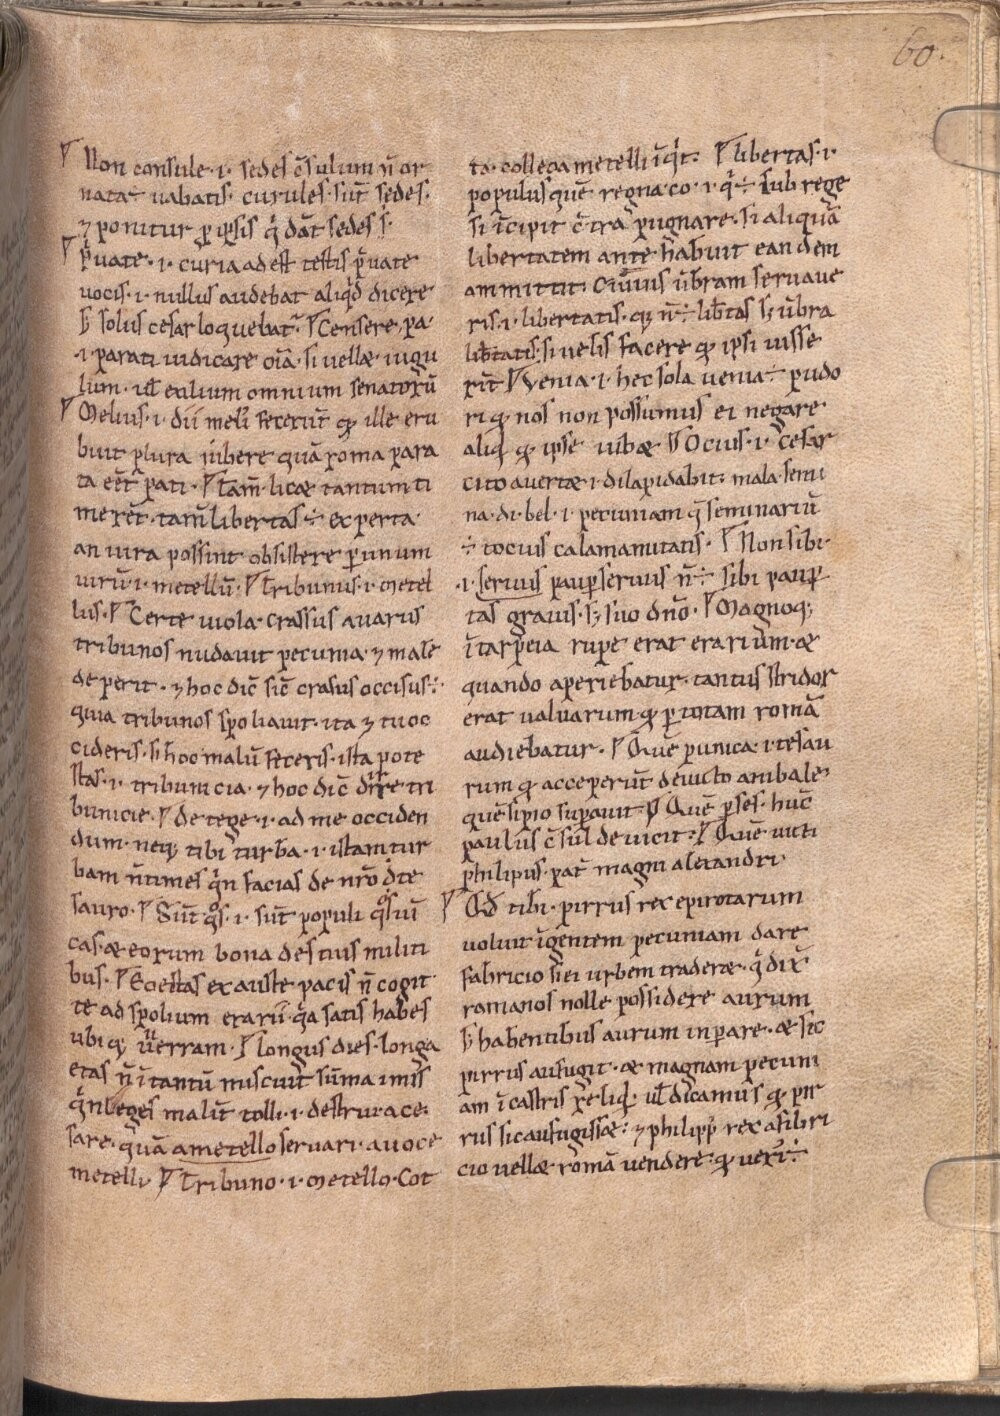 60.
Non consule· i· sedes c̄sulum n̄ or
nata ÷ uabatis· curules· sūt sedes·
⁊ ponitur p̱ ip̄sis q̄ dāt sedes s·
p̄uate· i· curia adest testis p̄uate
uocis· i· nullus audebat aliq̄d dicere
s; solus cesar loquebat᷑· Censere· pa·
·i· parati iudicare oīa· si uellæ iugu
lum· uł exilium omnium senatorū
Melius· i· dii meli᷑ fecerūt q̱ ille eru
buit plura iubere quā roma para
ta eēt pati· Tam̄· licæ tantum ti
merēt· tam̄ libertas ÷ experta·
an iura possint obsistere p̱ unum
uirū· i· metellū· Tribunus· i· metel
lus· Certe uiola· crassus auarus
tribunos nudauit pecunia· ⁊ male
deperit· ⁊ hoc dic̄ sic̄ crasus occisus·
quia tribunos spoliauit· ita ⁊ tu oc
cideris· si hoc malū feceris· ista pote
stas· i· tribunicia· ⁊ hoc dic̄ dire tri
bunicie· Detege· i· ad me occiden
dum· neq; tibi turba· i· istam tur
bam n̄ times q̄n facias de nr̄o dite
sauro· Sūt q̊s· i· sūt populi q̊siui
cas· æ eorum bona des tuis militi
bus· Egestas exauste pacis n̄ cogit
te ad spolium erarii· q̄a satis habes
ubiq; ūerram· Longus dies· longa
etas n̄ ītantū miscuit sūma imis
q̄n leges malūt tolli· i· destrui a ce·
sare· quā a metello seruari· a uoce
metelli· Tribuno· i· metello· Cot
ta· collega metelli īq̄t· Libertas· i·
populus quē regna· co· i· q̄ ÷ sub rege
si īcipit c̄tra pugnare· si aliquā
libertatem ante habuit eandem
ammittit· Cuius ūbram seruaue
ris· i· libertatis· q; n̄ ÷ lib̄tas s; ūbra
lib̄tatis· si uelis facere q̱ ipsi iusse
rīt Venia· i· hec sola uenia ÷ pudo
ri q̱ nos non possumus ei negare
aliq̱ q̱ ipse iubæ Ocius· i· cesar
cito auertæ· i· dilapidabit· mala semi
na· di· bel· i· pecuniam q̄ seminariū
÷ tocius calamanitatis· Non sibi·
·i· seruus paup̱ seruus n̄ ÷ sibi paup̱
tas grauis· s; suo dn̄o· Magnoq;
ī tarpeia rupe erat erarium· æ
quando aperiebatur· tantus stridor
erat ualuarum q̱ p̱ totam romā
audiebatur· Quē punica· i· tesau
rum q̱ acceperūt deuicto anibale·
quē sipio sup̱auit Quē p̱ses· huc̄
paulus c̄sul deuicit· Quē uicti
philipus· pat᷑ magni alexandri·
Qd̄ tibi· pirrus rex epirotarum
uoluit īgentem pecuniam dare
fabricio si ei urbem traderæ· q̄ dix̄
romanos nolle possidere aurum
s; habentibus aurum inperare· æ sic
pirrus aufugit· æ magnam pecuni
am ī castris reliq̄· uł dicamus q̱ pir
rus sic aufugissæ· ⁊ philipp̄ rex a fibri
cio uellæ romā uendere· q̱ ueri᷑ ÷